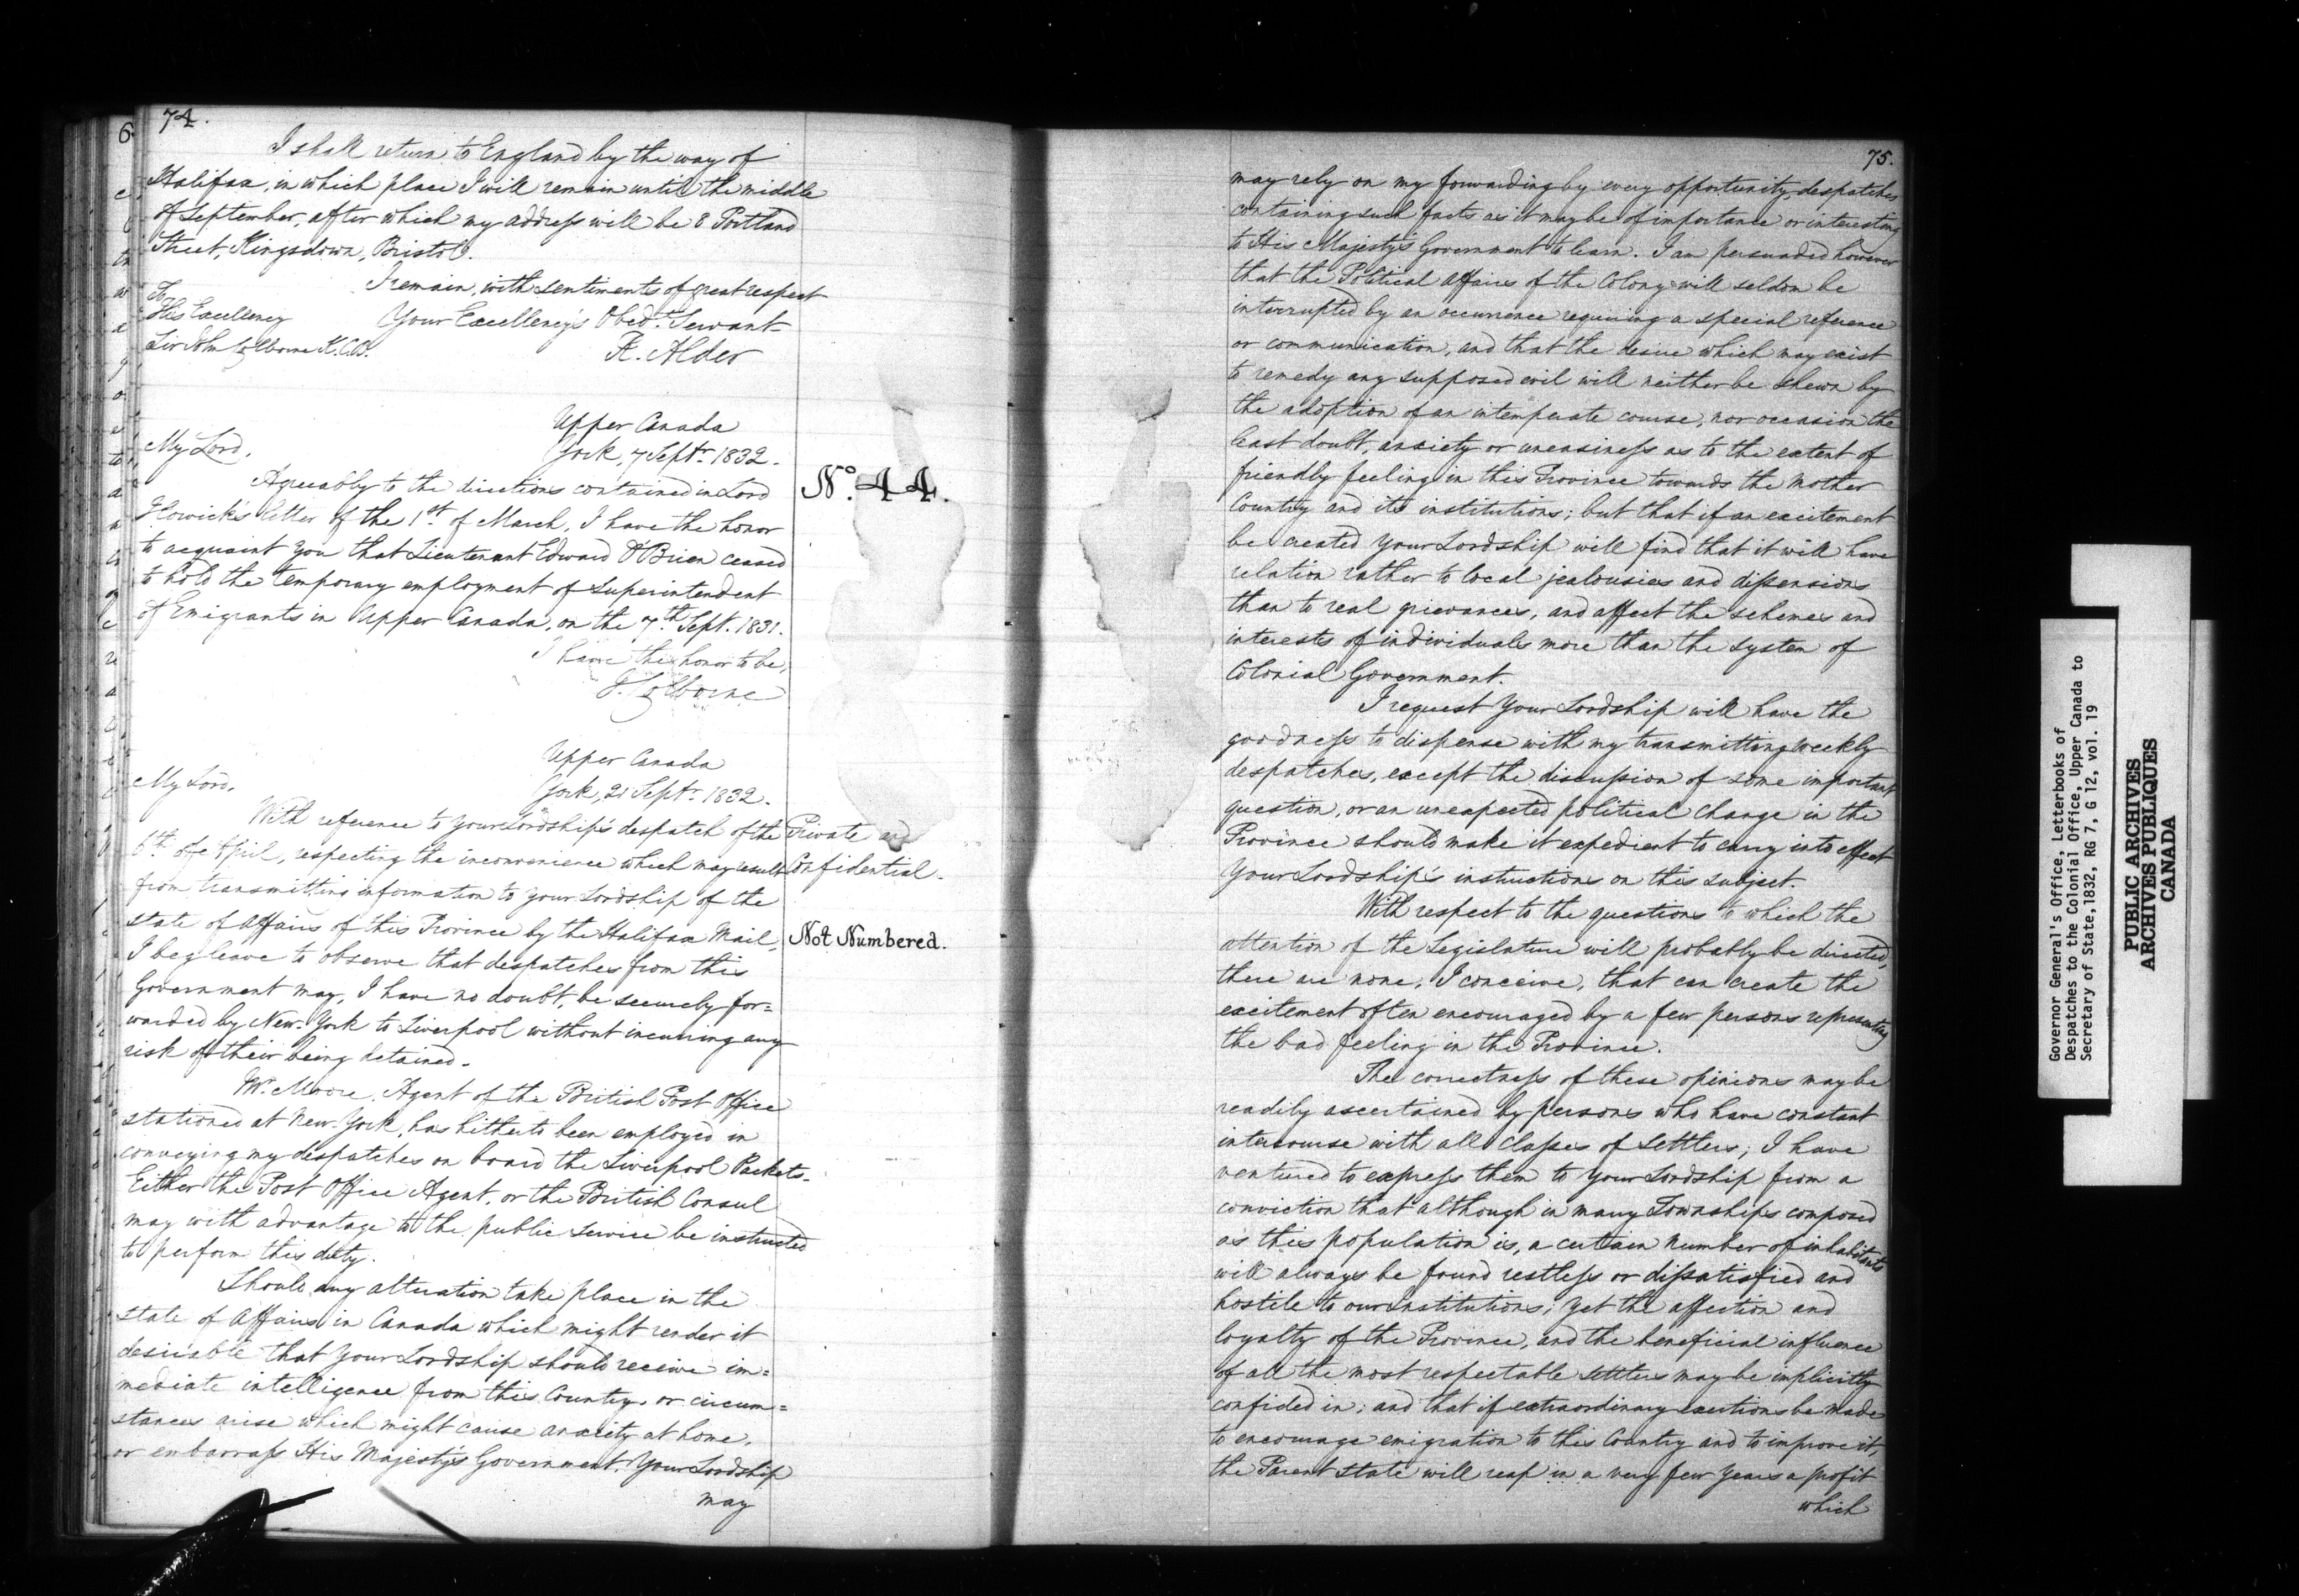 74.
I shall return to England by the way of
Halifax, in which place I will remain until the middle
of September, after which my address will be 8 Portland
Street, Kingsdown, Bristol.
I remain, with sentiments of great respect
To
His Excellency
Your Excellency's Obedt. Servant
Sir John Colborne K.C.B.
R. Alder
Upper Canada
York, 7 Septr. 1832.
My Lord,
No. 44.
Agreeably to the directions contained in Lord
Howick's letter of the 1st. of March, I have the honor
to acquaint you that Lieutenant Edward O'Brien ceased
to hold the temporary employment of Superintendent
of Emigrants in Upper Canada, on the 7th. Sept. 1831.
I have the honor to be,
J. Colborne
Upper Canada
York, 21 Septr. 1832.
My Lord,
Private and
Confidential.
Not Numbered.
With reference to your Lordship's despatch of the
6th of April, respecting the inconvenience which may result
from transmitting information to your Lordship of the
state of Affairs of this Province by the Halifax Mail,
I beg leave to observe that despatches from this
Government may, I have no doubt, be securely for=
warded by New-York to Liverpool without incurring any
risk of their being detained.
Mr. Moore, Agent of the British Post Office
stationed at New-York, has hitherto been employed in
conveying my despatches on board the Liverpool Packets.
Either the Post Office Agent, or the British Consul
may with advantage to the public service be instructed
to perform this duty.
Should any alteration take place in the
state of Affairs in Canada which might render it
desirable that Your Lordship should receive im=
mediate intelligence from this Country, or circum=
stances arise which might cause anxiety at home,
or embarrass His Majesty's Government, Your Lordship
may
75.
may rely on my forwarding by every opportunity, despatches
containing such facts as it may be of importance or interesting
to His Majesty's Government to learn. I am persuaded however
that the Political Affairs of the Colony will seldom be
interrupted by an occurrence requiring a special reference
or communication, and that the desire which may exist
to remedy any supposed evil will neither be shewn by
the adoption of an intemperate course, nor occasion the
least doubt, anxiety or uneasiness as to the extent of
friendly feeling in this Province towards the Mother
Country and its institutions; but that if an excitement
be created Your Lordship will find that it will have
relation rather to local jealousies and dissensions
than to real grievances, and affect the schemes and
interests of individuals more than the system of
Colonial Government.
I request Your Lordship will have the
goodness to dispense with my transmitting weekly
despatches, except the discussion of some important
question, or an unexpected political change in the
Province should make it expedient to carry into effect
Your Lordship's instructions on this subject.
With respect to the questions to which the
attention of the Legislature will probably be directed,
there are none, I conceive, that can create the
excitement often encouraged by a few persons representing
the bad feeling in the Province.
The correctness of these opinions may be
readily ascertained by persons who have constant
intercourse with all Classes of Settlers; I have
ventured to express them to your Lordship from a
conviction that although in many Townships composed
as this population is, a certain number of inhabitants
will always be found restless or dissatisfied and
hostile to our institutions; yet the affection and
loyalty of the Province, and the beneficial influence
of all the most respectable settlers may be implicitly
confided in; and that if extraordinary exertions be made
to encourage emigration to this Country and to improve it,
the Parent State will reap in a very few years a profit
which
Governor General's Office, Letterbooks of
Despatches to the Colonial Office, Upper Canada to
Secretary of State, 1832, RG 7, G 12, vol. 19
PUBLIC ARCHIVES
ARCHIVES PUBLIQUES
CANADA